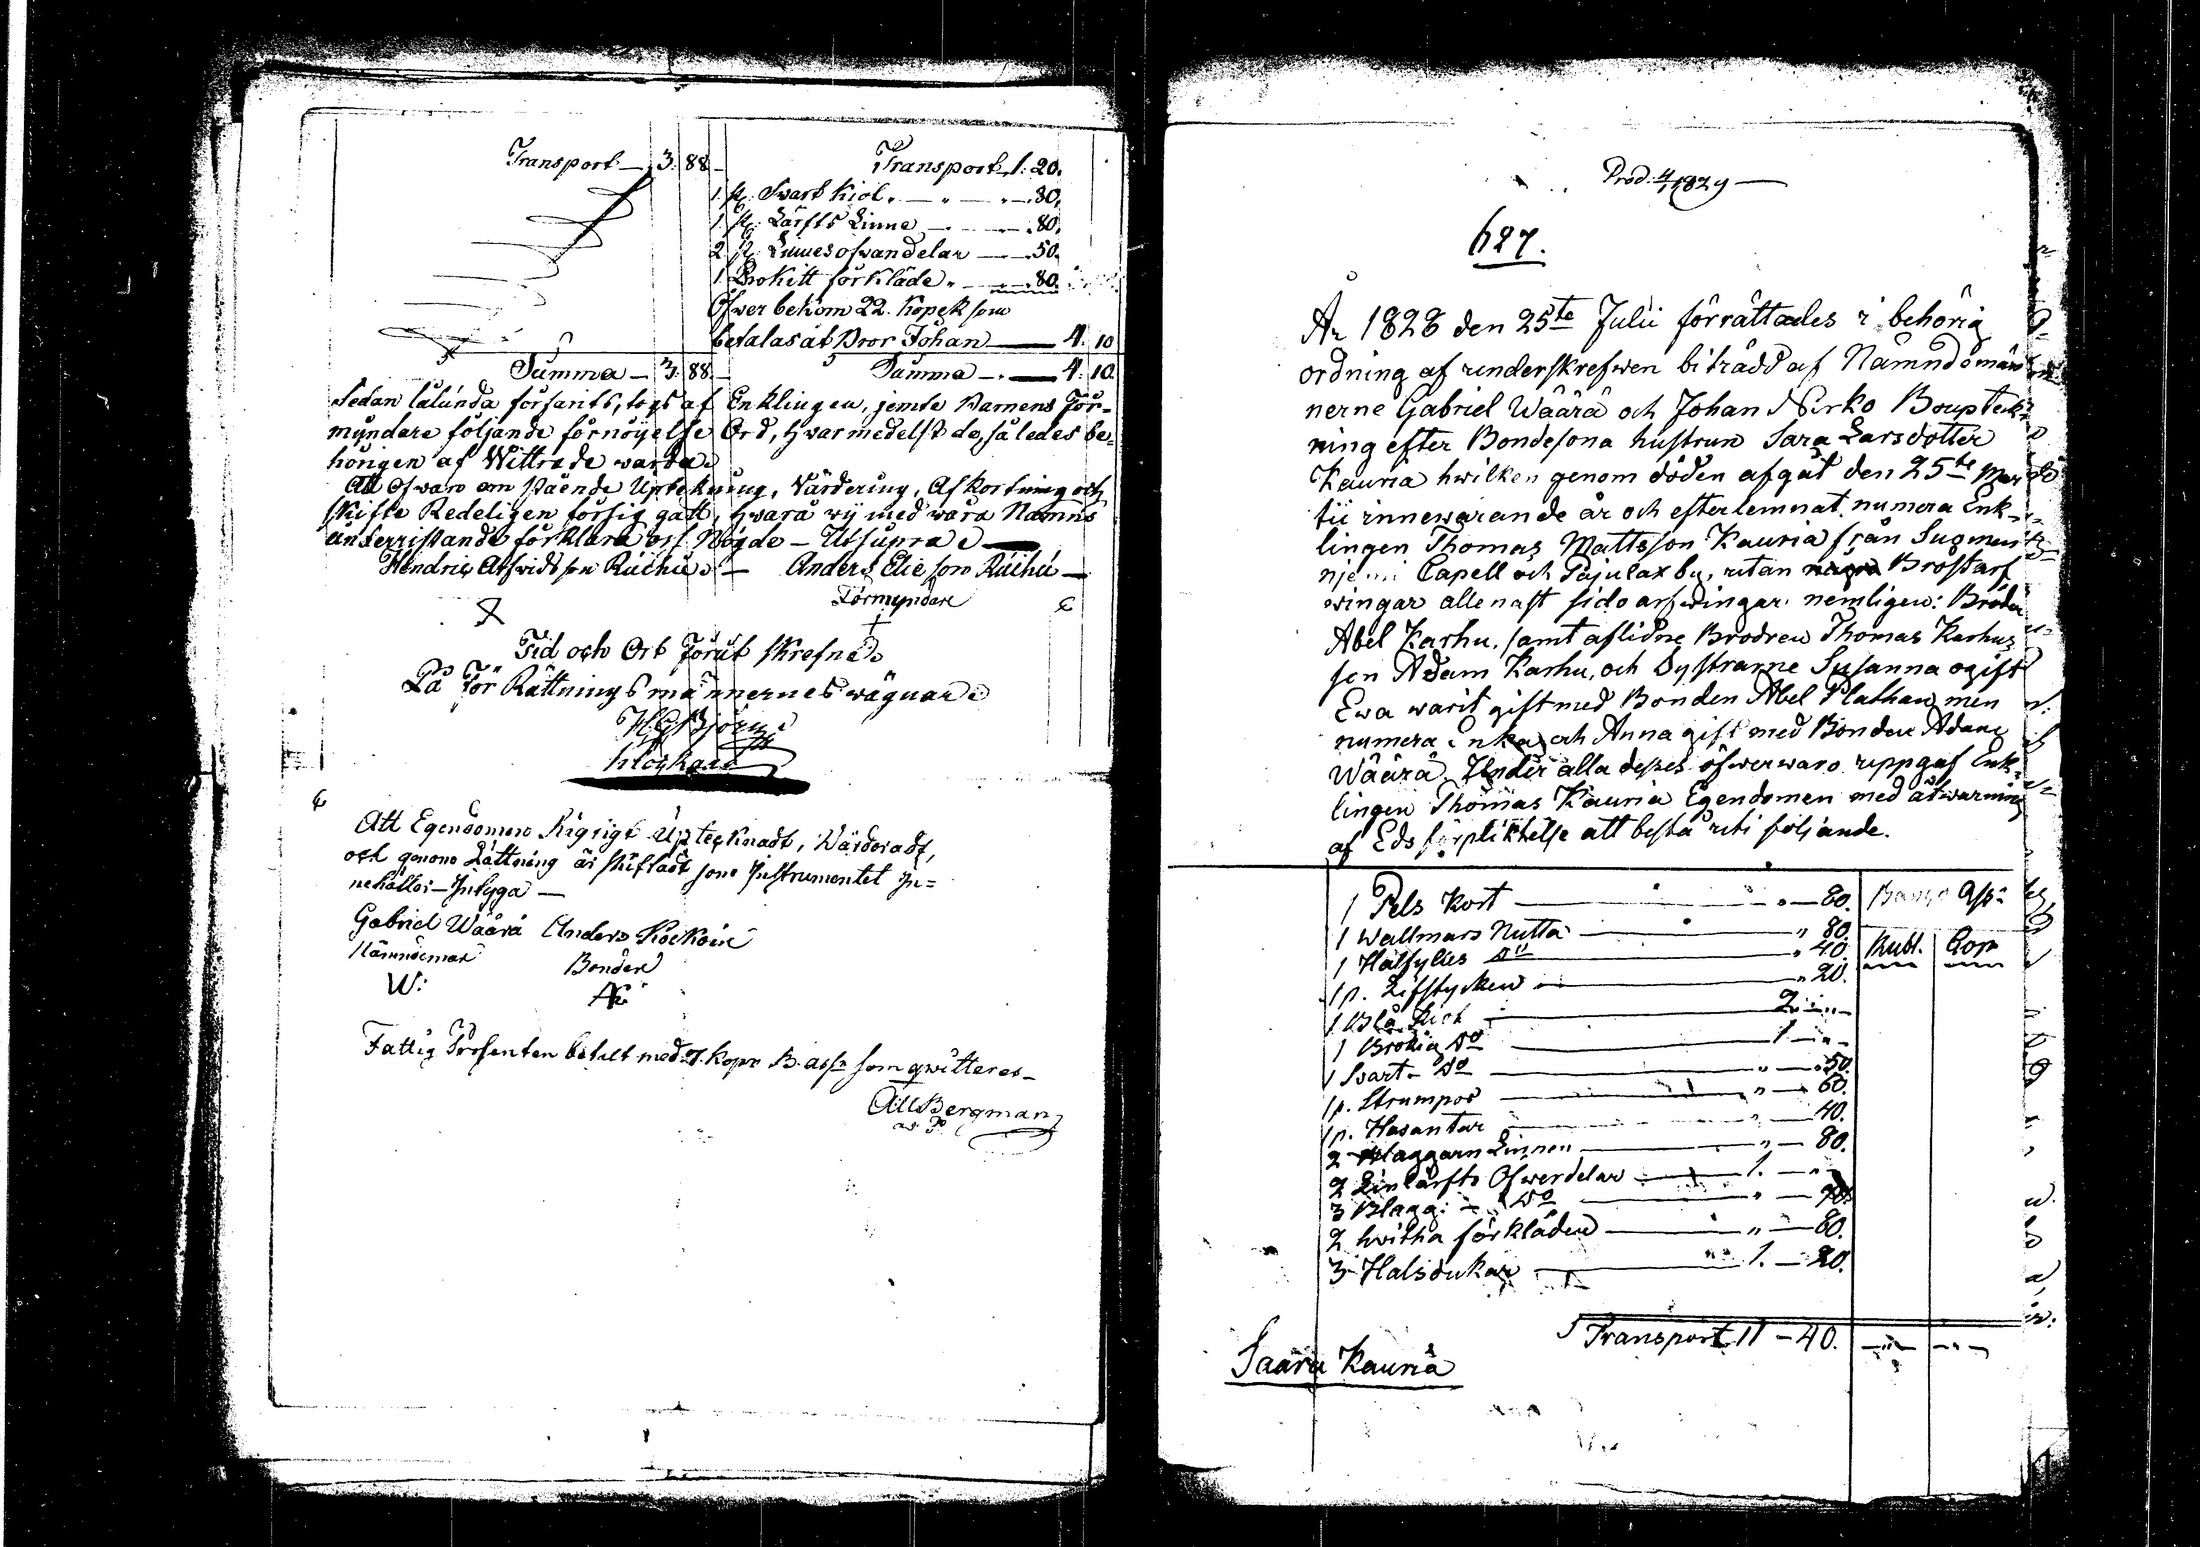 Transport — 3. 88.
Transport 1: 20.
1 st. Swart Kiol „ — „ — 80.
1 st. Lärfts Linne — — 80.
2 st. Linnesofwandelar — — 50.
1 Brokitt förkläde „ — — 80.
Öfwer bekom 22. Kopek som
betalas åt Bror Johan — 4. 10
Summa — 3. 88. —
Summa — „ — 4. 10.
Sedan sålunda forfarits, togs af Enklingen, jemte Barnens För-
myndare följande förnöyelse Ord, hwarmedelst de, således be-
hörigen af Wittrade warda.
Att Ofwan om stående Uptekning, Värdering, Afkortning och
skifte Redeligen försig gått, hwarå wij med våra Namns
underristande förklara oss Nögde — Ut supra.
Hendric Arfwidsson Ruuhu. — Anders Eliesson Ruuhu —
Förmyndare
Tid och Ort Förut skrefne.
På För Rättningsmännernes wägnar.
HGBjörn
Klockare
Att Egendomen Rigtigt Uptecknadt, Wärderadt,
och genom Lättning är skiftadt som Instrumentet In=
nehåller — Intyga —
Gabriel Wäärä Anders Kockoin
Nämndeman Bonden
W: AK
Fattig Prosenten betalt med 7. Kopr B. assr som qwitteras —
Bergman
Prod. 4/1 1829 —
627.
År 1828 den 25te Julii förrättades i behörig
ordning af underskrefwen biträdd af Nämndemän
nerne Gabriel Wäärä och Johan Nirko Boupteck
ning efter Bondesona hustrun Sara Larsdotter
Kauria hwilken genom döden afgåt den 25te Mar
tii innewarande år och efterlemnat numera Enk-
lingen Thomas Mattsson Kauria från Suomen
njemi Capell och Pajulax by, utan Bröstarf
wingar allenast sido arfwingar nemligen: Brodren
Abel Karhu, samt aflidne Brodren Thomas Karhus
son Adam Karhu, och Systrarne Susanna ogift
Ewa warit gift med Bonden Abel Plathan men
numera Enka, och Anna gift med Bonden Adam
Wäärä. Under alla desses öfwerwaro uppgaf Enk-
lingen Thomas Kauria Egendomen med åtwarning
af Eds förpliktelse att bestå uti följande.
Banco Ass:
Rubl. Cop
1 Pels Kort — „ — 80.
1 Wallmars Nutta — „ 80.
1 Halfylles do — „ 40.
1 p. Lifstycken — „ 20.
1 Blå Kiol — 2 „ —
1 Brokig do — 1 — „ —
1 Svart — do — „ — 50.
1 p. Strumpor — „ — 60.
1 p. Hasantar — „ — 40.
2 Blaggarn Linnen — „ — 80.
2 Linlärfts Ofwerdelar — 1. — „ —
3 Blagg: — do — „ — 90.
2 hwitha förkläden — „ — 80.
3 Halsdukar — 1. — 20.
Transport 11 — 40. — „ — — „ —
Saara Kauria